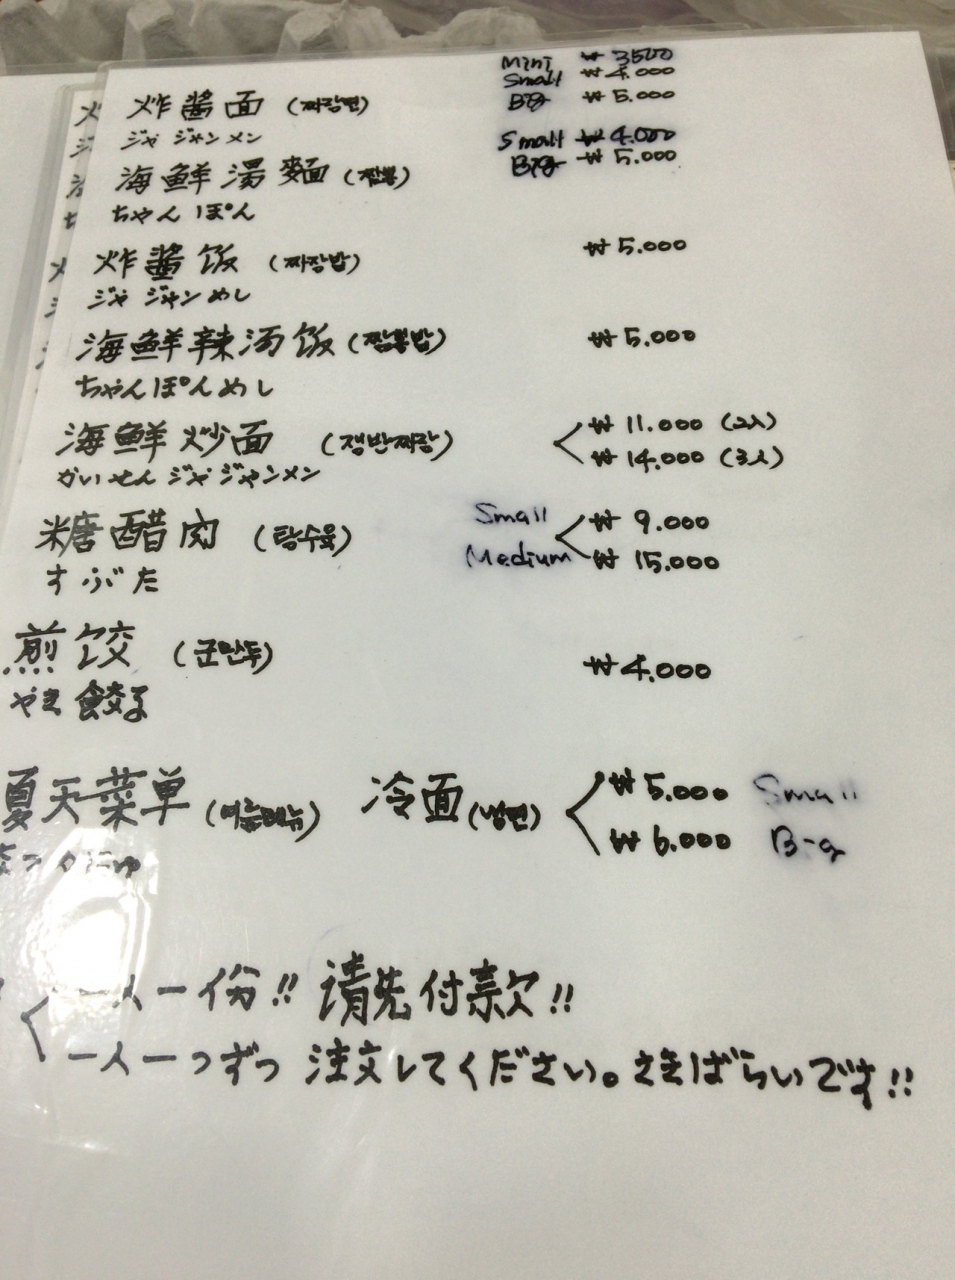 Mini ₩ 3500
Small ₩ 4.000
炸酱面 (짜장면) Big ₩ 5.000
ジャ ジャン メン
Small ₩ 4.000
海鮮湯麵 (짬뽕) Big ₩ 5.000
ちゃんぽん
炸酱饭 (짜장밥) ₩ 5.000
ジャ ジャン めし
海鮮辣汤饭 (짬뽕밥) ₩ 5.000
ちゃんぽんめし
海鮮炒面 (쟁반짜장) ₩ 11.000 (2人)
₩ 14.000 (3人)
かいせん ジャ ジャンメン
糖醋肉 (탕수육) Small ₩ 9.000
Medium ₩ 15.000
すぶた
煎饺 (군만두) ₩ 4.000
やき 餃子
夏天菜单 (여름메뉴) 冷面 (냉면) ₩ 5.000 Small
₩ 6.000 Big
一人一份!! 请先付款!!
一人一つずつ 注文してください。さきばらいです!!